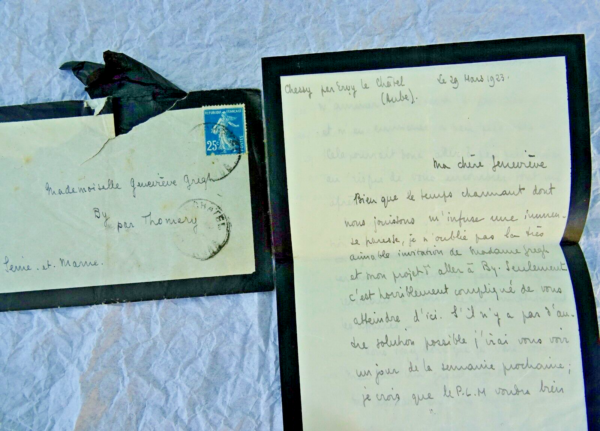 Mademoiselle Geneviève Gregh
By
par Thomery
Seine-et-Marne.
25c
CHATEL
Chessy par Ervy le Châtel
(Aube).
Le 29 Mars 1923.
Ma chère Geneviève
Bien que le temps charmant dont
nous jouissons m'infuse une immen-
se paresse, je n'oublie pas la très
aimable invitation de Madame Gregh
et mon projet d'aller à By. Seulement
c'est horriblement compliqué de vous
atteindre d'ici. S'il n'y a pas d'au-
tre solution possible j'irai vous voir
un jour de la semaine prochaine;
je crois que le P.L.M voudra bien